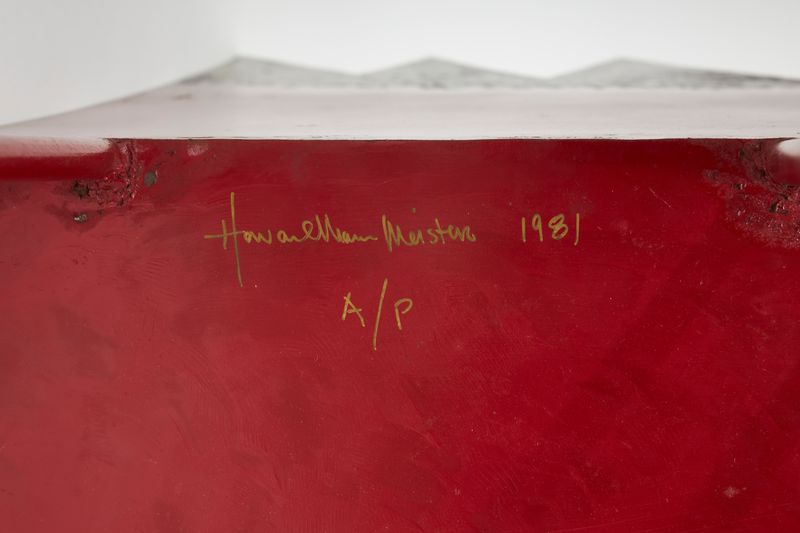 Howard Mann Meister 1981
A/P